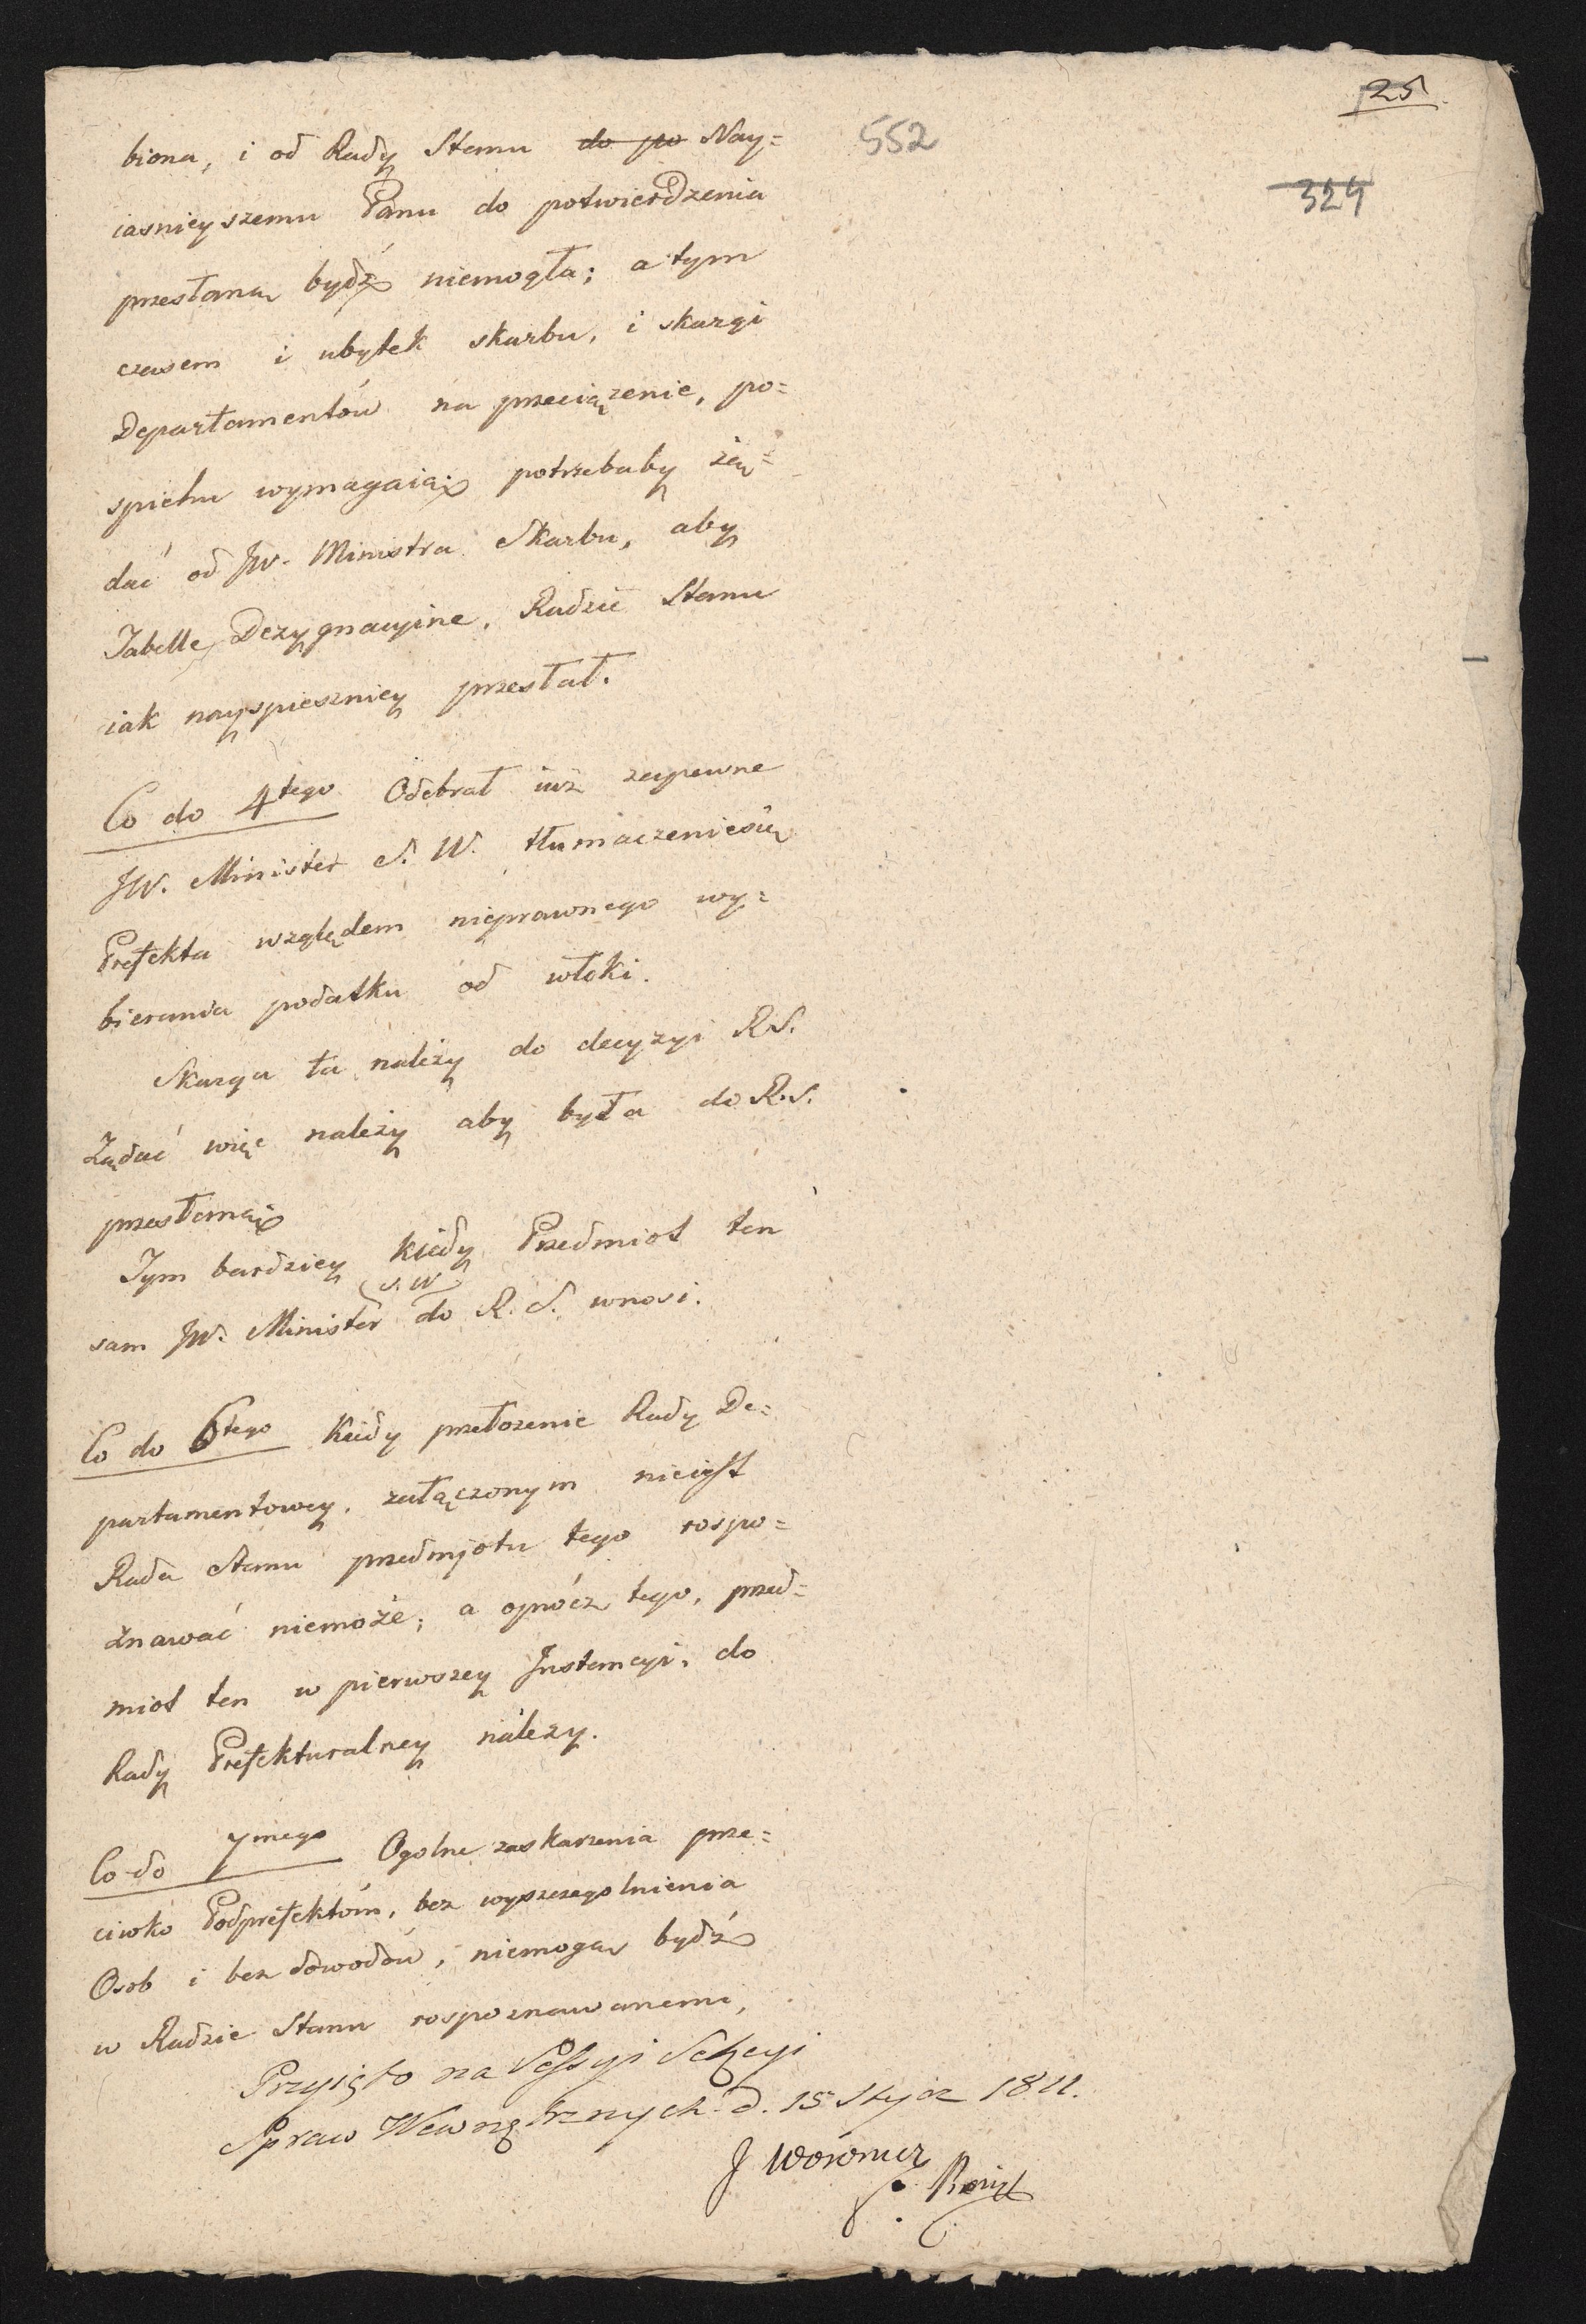 25
552
324
biona, i od Rady Stanu do po Nay=
iasnieyszemu Panu do potwierdzenia
przesłaną bydź niemogła; a tym
czasem i ubytek skarbu, i skargi
Departamentów na przeciążenie, po=
spiechu wymagaią; potrzebaby żą=
dać od JW. Ministra Skarbu, aby
Tabellę Dezygnacyine, Radzie Stanu
iak nayspieszniey przesłał.
Co do 4tego Odebrał iuż zapewne
JW. Minister S. W. tłumaczenie się
Prefekta względem nieprawnego wy=
bierania podatku od włoki.
Skarga ta należy do decyzyi R.S.
Żądać więc należy aby była do R.S.
przesłaną;
Tym bardziey kiedy Przedmiot ten
S. W
sam JW. Minister do R. S. wnosi.
Co do 6tego Kiedy przełożenie Rady De=
partamentowey, załączonym nieiest
Rada Stanu przedmiotu tego rospo=
znawać niemoże; a oprócz tego, przed=
miot ten w pierwszey Instancyi, do
Rady Prefekturalney należy.
Co do 7mego Ogolne zaskarzenia prze=
ciwko Podprefektóm, bez wyszczegolnienia
Osob i bez dowodów, niemogą bydź
w Radzie Stanu rospoznawanemi,
Przyięto na Sessyi Sekcyi
Spraw Wewnętrznych d. 15 Stycz 1811.
J Woronicz